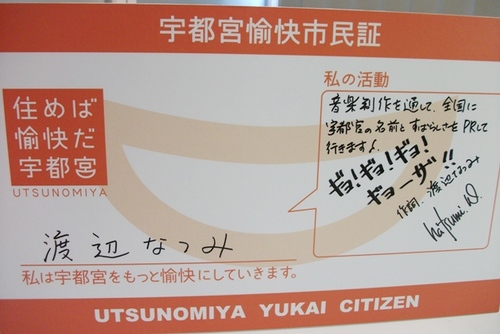 宇都宮愉快市民証
住めば
愉快だ
宇都宮
UTSUNOMIYA
私の活動
音楽制作を通して、全国に
宇都宮の名前とすばらしさをPRして
行きます♪
ギョ!ギョ!ギョ!
ギョーザ!!
作詞 渡辺なつみ
Natsumi.W.
渡辺なつみ
私は宇都宮をもっと愉快にしていきます。
UTSUNOMIYA YUKAI CITIZEN